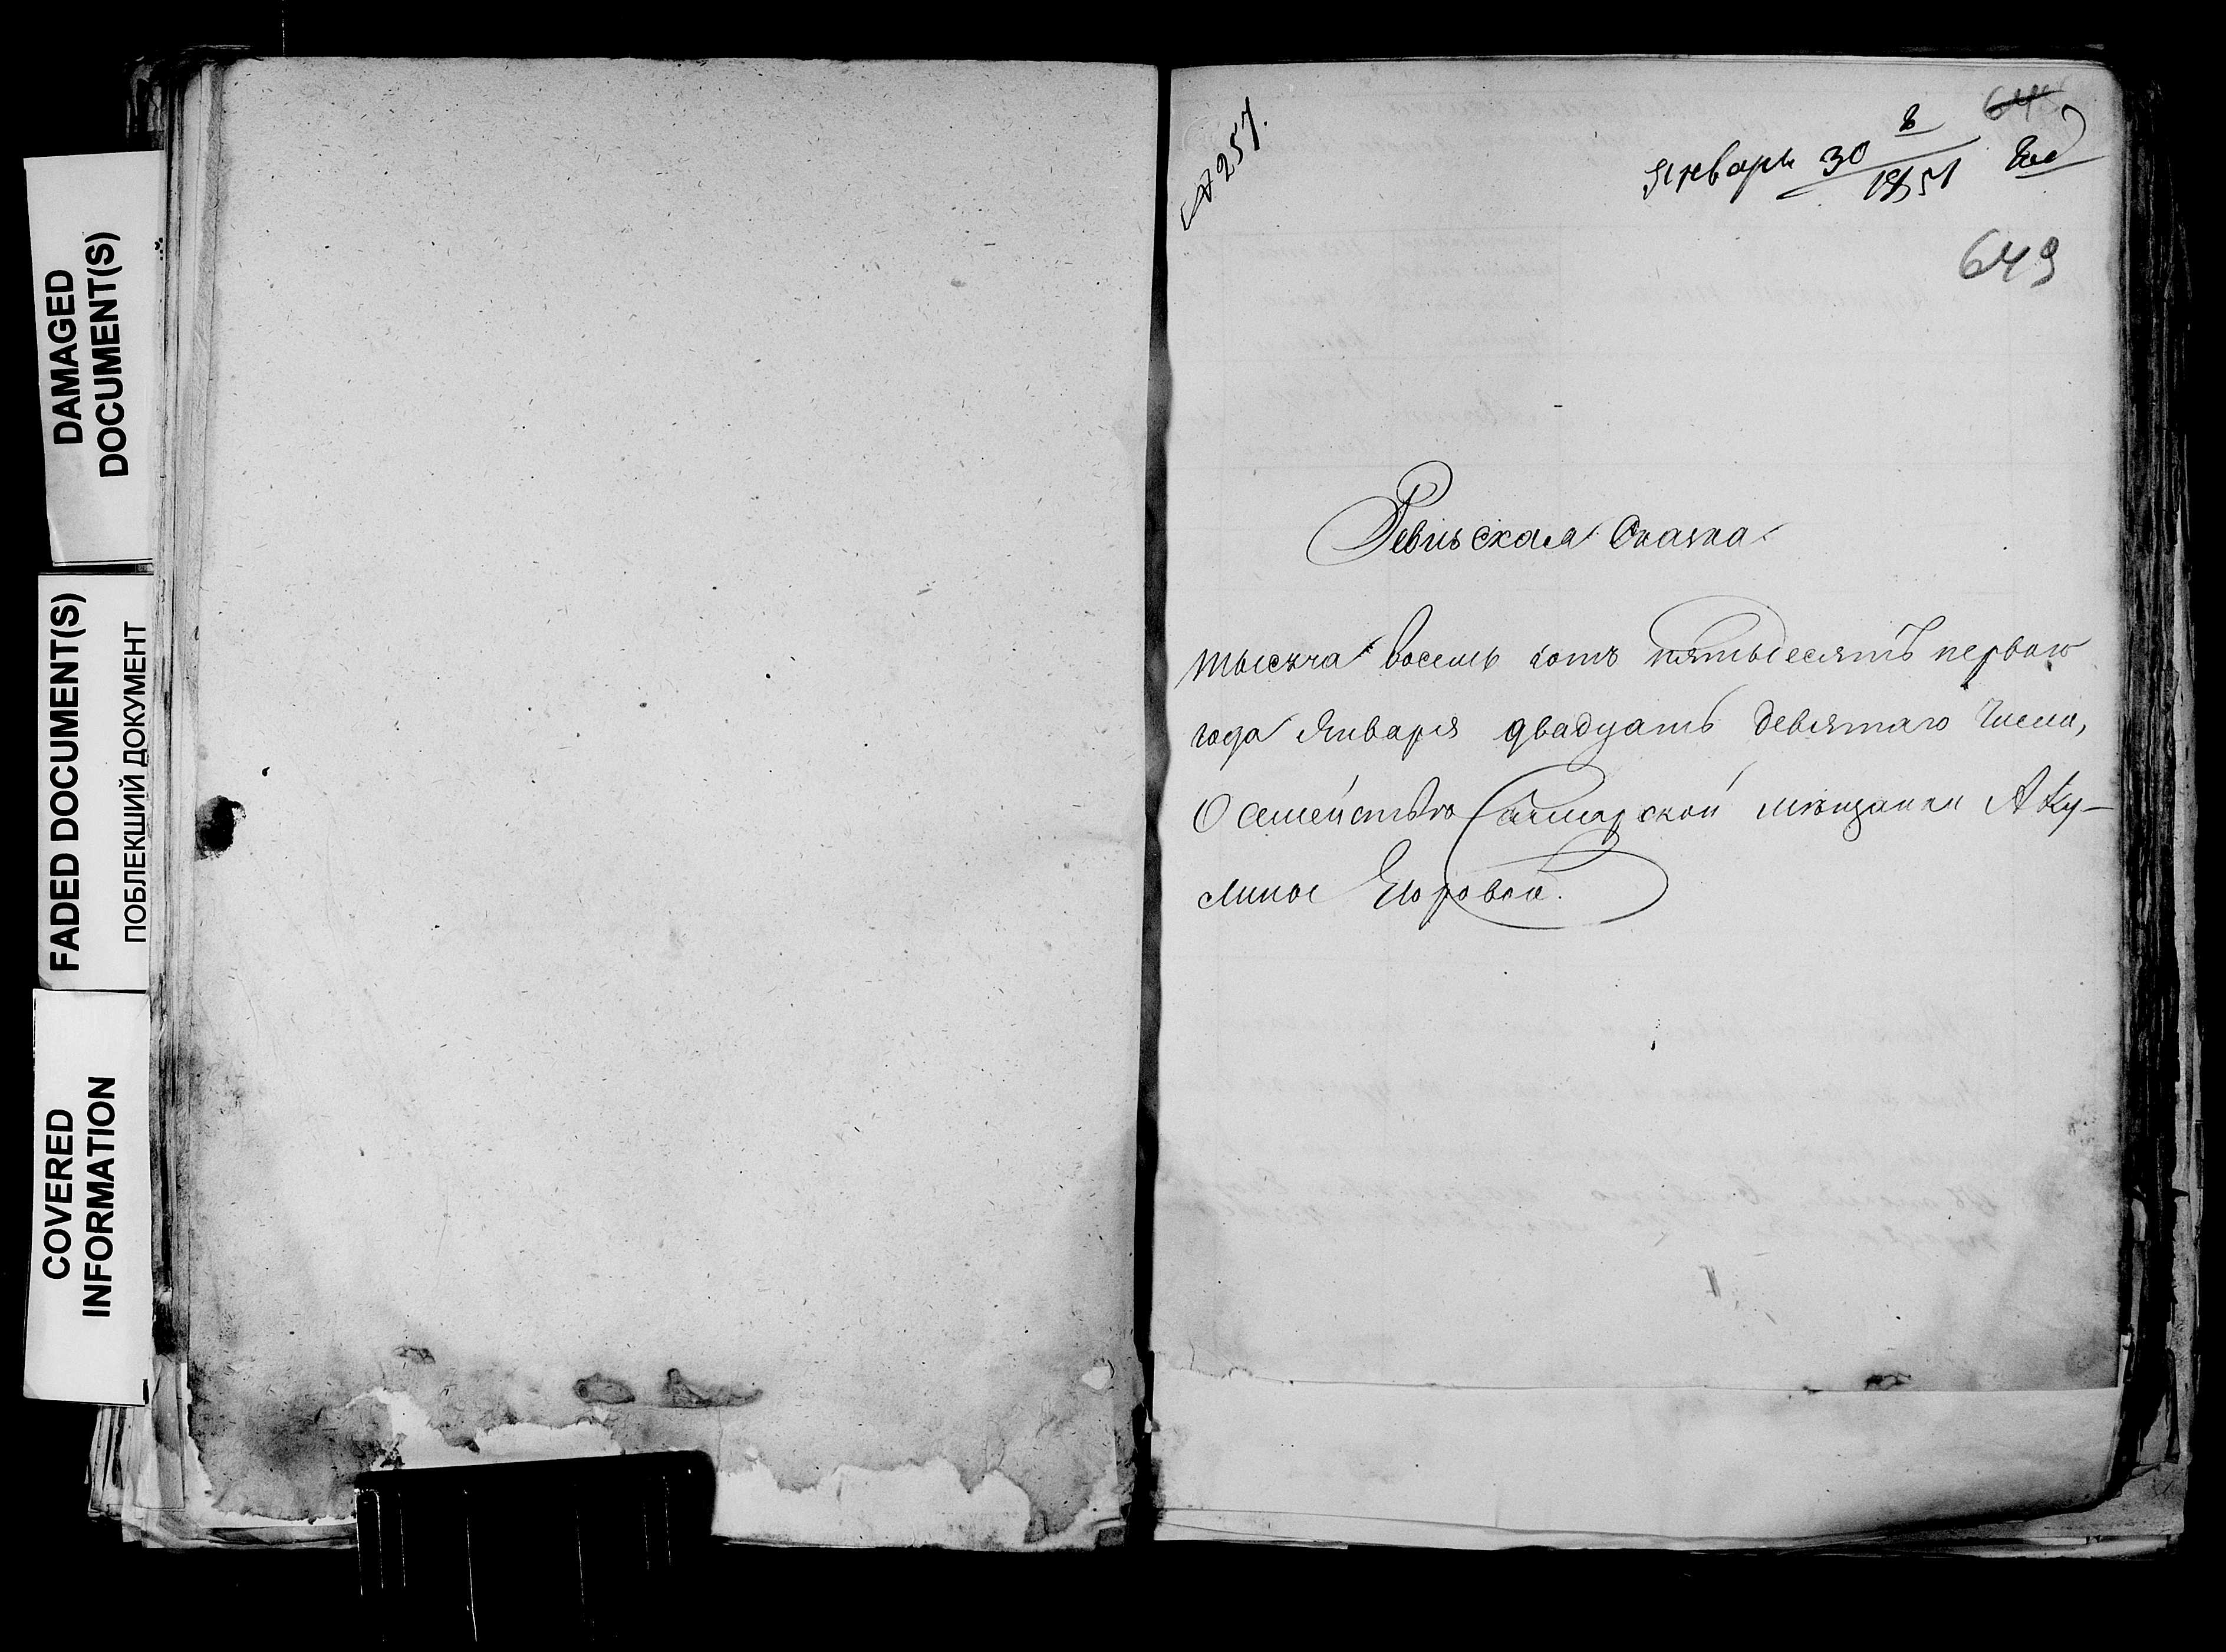 DAMAGED
DOCUMENT(S)
FADED DOCUMENT(S)
ПОБЛЕКШИЙ ДОКУМЕНТ
COVERED
INFORMATION
№ 257.
Январь 30 1851 Год
649
Ревизская Сказка
тысяча восемь сотъ пятьдесятъ первого
года Января двадцать девятаго числа,
О семействѣ Самарской мѣщанки Аку-
лины Егоровой.